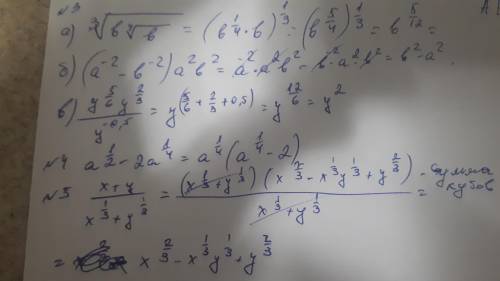 №3 А
а) ∛(b ∜b) = (b^(1/4) · b)^(1/3) = (b^(5/4))^(1/3) = b^(5/12) =
б) (a^-2 - b^-2) a^2 b^2 = a^-2 · a^2 b^2 - b^-2 a^2 b^2 = b^2 - a^2.
в) (y^(5/6) y^(2/3)) / y^(-0,5) = y^(5/6 + 2/3 + 0,5) = y^(12/6) = y^2
№4 a^(1/2) - 2a^(1/4) = a^(1/4) (a^(1/4) - 2)
№5 (x + y) / (x^(1/3) + y^(1/3)) = (x^(1/3) + y^(1/3)) (x^(2/3) - x^(1/3) y^(1/3) + y^(2/3)) / (x^(1/3) + y^(1/3)) = - сумма кубов
= x^(2/3) - x^(1/3) y^(1/3) + y^(2/3)